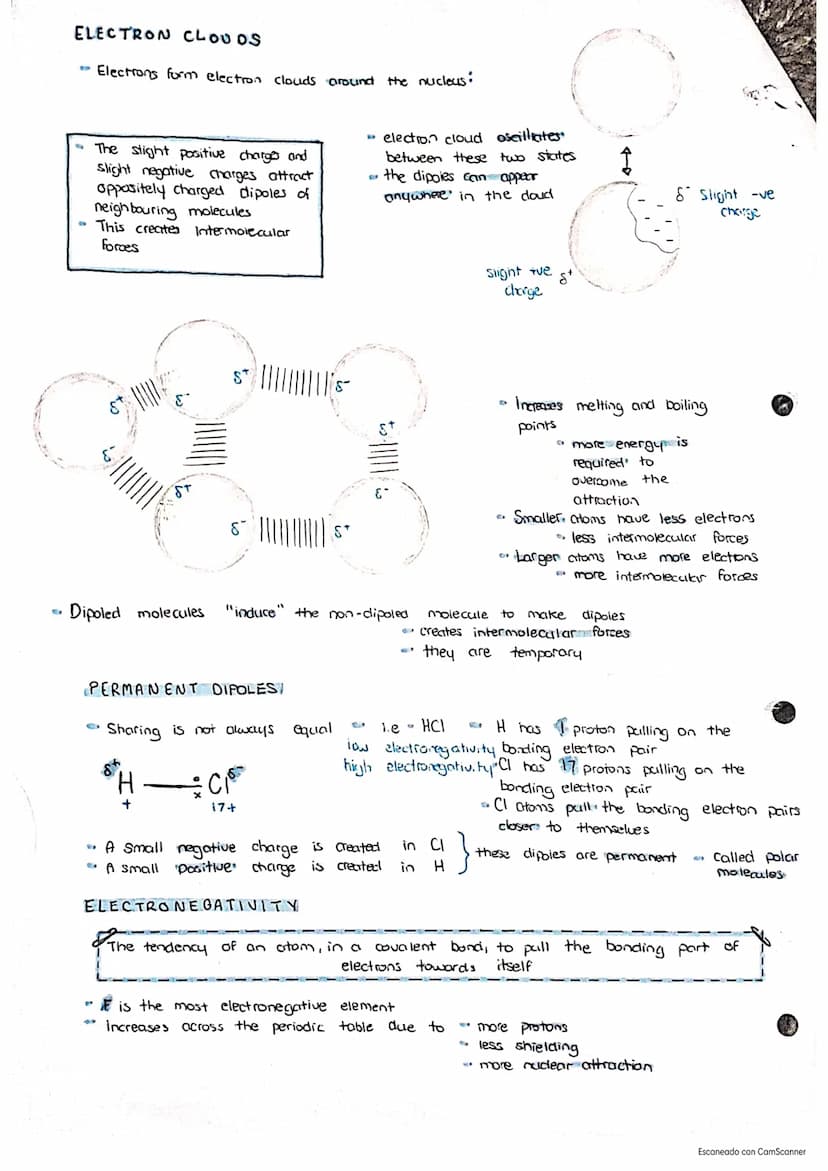 ELECTRON CLOUDS
Electrons form electron clouds around the nucleus:
The slight positive charge and
slight negative charges attract
oppositely charged dipoles of
neighbouring molecules
This creates Intermolecular
forces
electron cloud oscillates
between these two states
the dipoles can appear
anywhere in the cloud
δ- Slight -ve
charge
Slight +ve δ+
charge
δ+ δ-
δ+ δ-
δ+
δ-
δ+ δ-
δ- δ+
Increases melting and boiling
points
more energy is
required to
overcome the
attraction
Smaller atoms have less electrons
less intermolecular forces
Larger atoms have more electrons
more intermolecular forces
Dipoled molecules "induce" the non-dipoled molecule to make dipoles
creates intermolecular forces
they are temporary
PERMANENT DIPOLES
Sharing is not always equal
i.e - HCl - H has 1 proton pulling on the
low electronegativity bonding electron pair
high electronegativity Cl has 17 protons pulling on the
bonding electron pair
Cl atoms pull the bonding electron pairs
closer to themselves
δ+ H — Cl δ-
+ 17+
A small negative charge is created in Cl
A small positive charge is created in H
these dipoles are permanent - called polar
molecules
ELECTRONEGATIVITY
The tendency of an atom, in a covalent bond, to pull the bonding part of
electrons towards itself
F is the most electronegative element
Increases across the periodic table due to - more protons
less shielding
more nuclear attraction
Escaneado con CamScanner